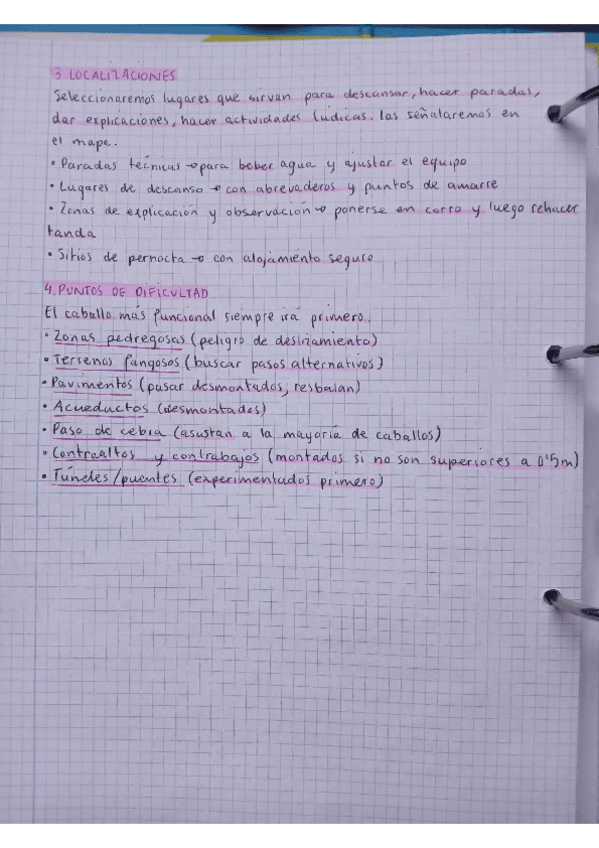 3. LOCALIZACIONES
Seleccionaremos lugares que sirvan para descansar, hacer paradas,
dar explicaciones, hacer actividades lúdicas. Las señalaremos en
el mapa.
• Paradas técnicas → para beber agua y ajustar el equipo
• Lugares de descanso → con abrevaderos y puntos de amarre
• Zonas de explicación y observación → ponerse en corro y luego rehacer
tanda
• Sitios de pernocta → con alojamiento seguro
4. PUNTOS DE DIFICULTAD
El caballo más funcional siempre irá primero.
• Zonas pedregosas (peligro de deslizamiento)
• Terrenos fangosos (buscar pasos alternativos)
• Pavimentos (pasar desmontados, resbalan)
• Acueductos (desmontados)
• Paso de cebra (asustan a la mayoría de caballos)
• Contraaltos y contrabajos (montados si no son superiores a 0'5m)
• Túneles/puentes (experimentados primero)